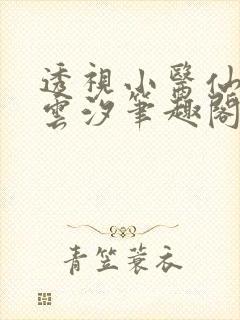 透視小醫仙
雲汐筆趣閣
青笠蓑衣